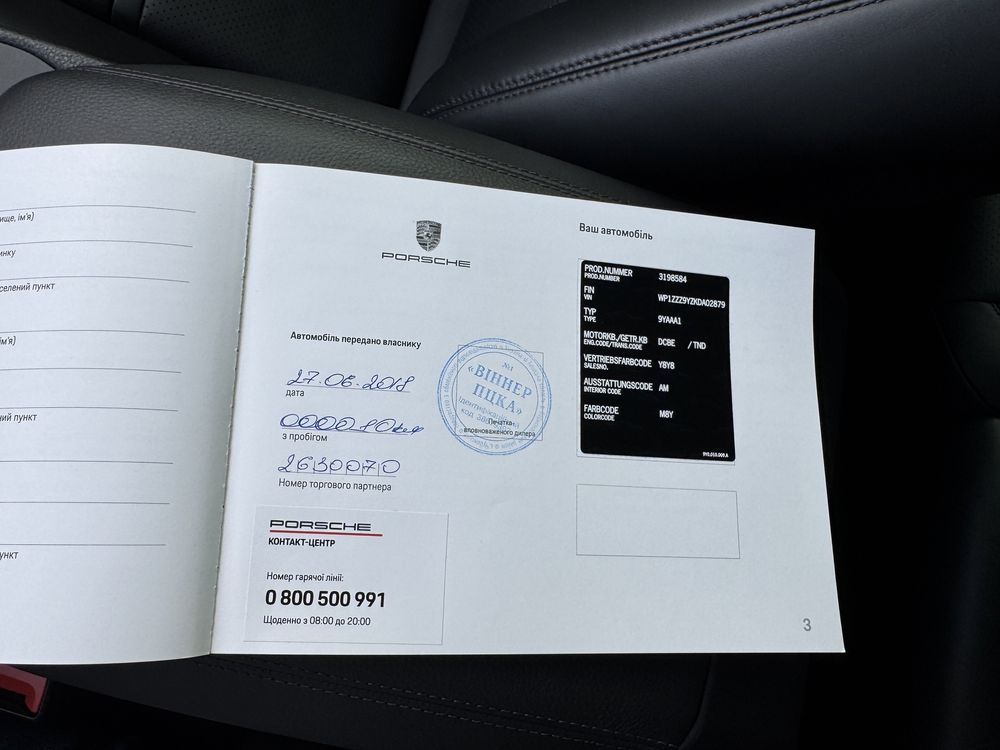 ище, ім'я)
инку
селений пункт
м'я)
ний пункт
ункт
PORSCHE
Автомобіль передано власнику
27.06.2018
дата
000010км
з пробігом
2630070
Номер торгового партнера
№1
«ВІННЕР
ПЦКА»
Печатка
вповноваженого дилера
PORSCHE
КОНТАКТ-ЦЕНТР
Номер гарячої лінії:
0 800 500 991
Щоденно з 08:00 до 20:00
Ваш автомобіль
PROD.NUMMER 3198584
PROD.NUMBER
FIN
VIN WP1ZZZ9YZKDA02879
TYP
TYPE 9YAAA1
MOTORKB./GETR.KB DCBE / TND
ENG.CODE/TRANS.CODE
VERTRIEBSFARBCODE Y8Y8
SALESNO.
AUSSTATTUNGSCODE AM
INTERIOR CODE
FARBCODE M8Y
COLORCODE
9Y0.010.009.A
3